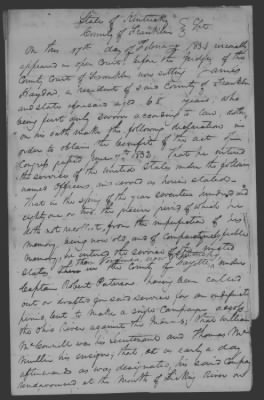 State of Kentucky
County of Franklin } Sct.
On this 17th day of February 1834 personally
appeared in open Court before the Justices of the
County Court of Franklin now sitting James
a resident of said County of Franklin
and state aforesaid aged 68 years; who
being first duly sworn according to law, doth,
on his oath make the following declaration in
order to obtain the benefit of the act of
Congress passed June 7th 1832. That he entered
the services of the United States under the following
named officers, and served as herein stated.
That in the spring of the year seventeen hundred and
eighty one or two, the precise period of which he
doth not recollect, from the imperfection of his
memory, being now old, and of
he entered the services of the United
States in the County of Fayette, under
Captain Robert Patterson having been called
out or drafted for said services for an indefinite
period, but to make a single Campaign across
the Ohio River against the Indians; that William
McConnell was his Lieutenant and Thomas
his ensign; that, at as early a day
afterwards as was designated, his said Company
rendezvoused at the Mouth of Licking River on